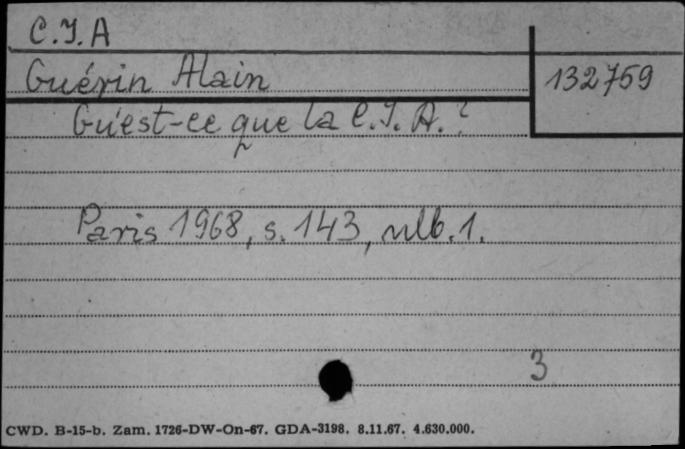 C.I.A
Guérin Alain
132759
Gu'est-ce que la C.I.A.?
Paris 1968, s. 143, nlb. 1.
3
CWD. B-15-b. Zam. 1726-DW-On-67. GDA-3198. 8.11.67. 4.630.000.